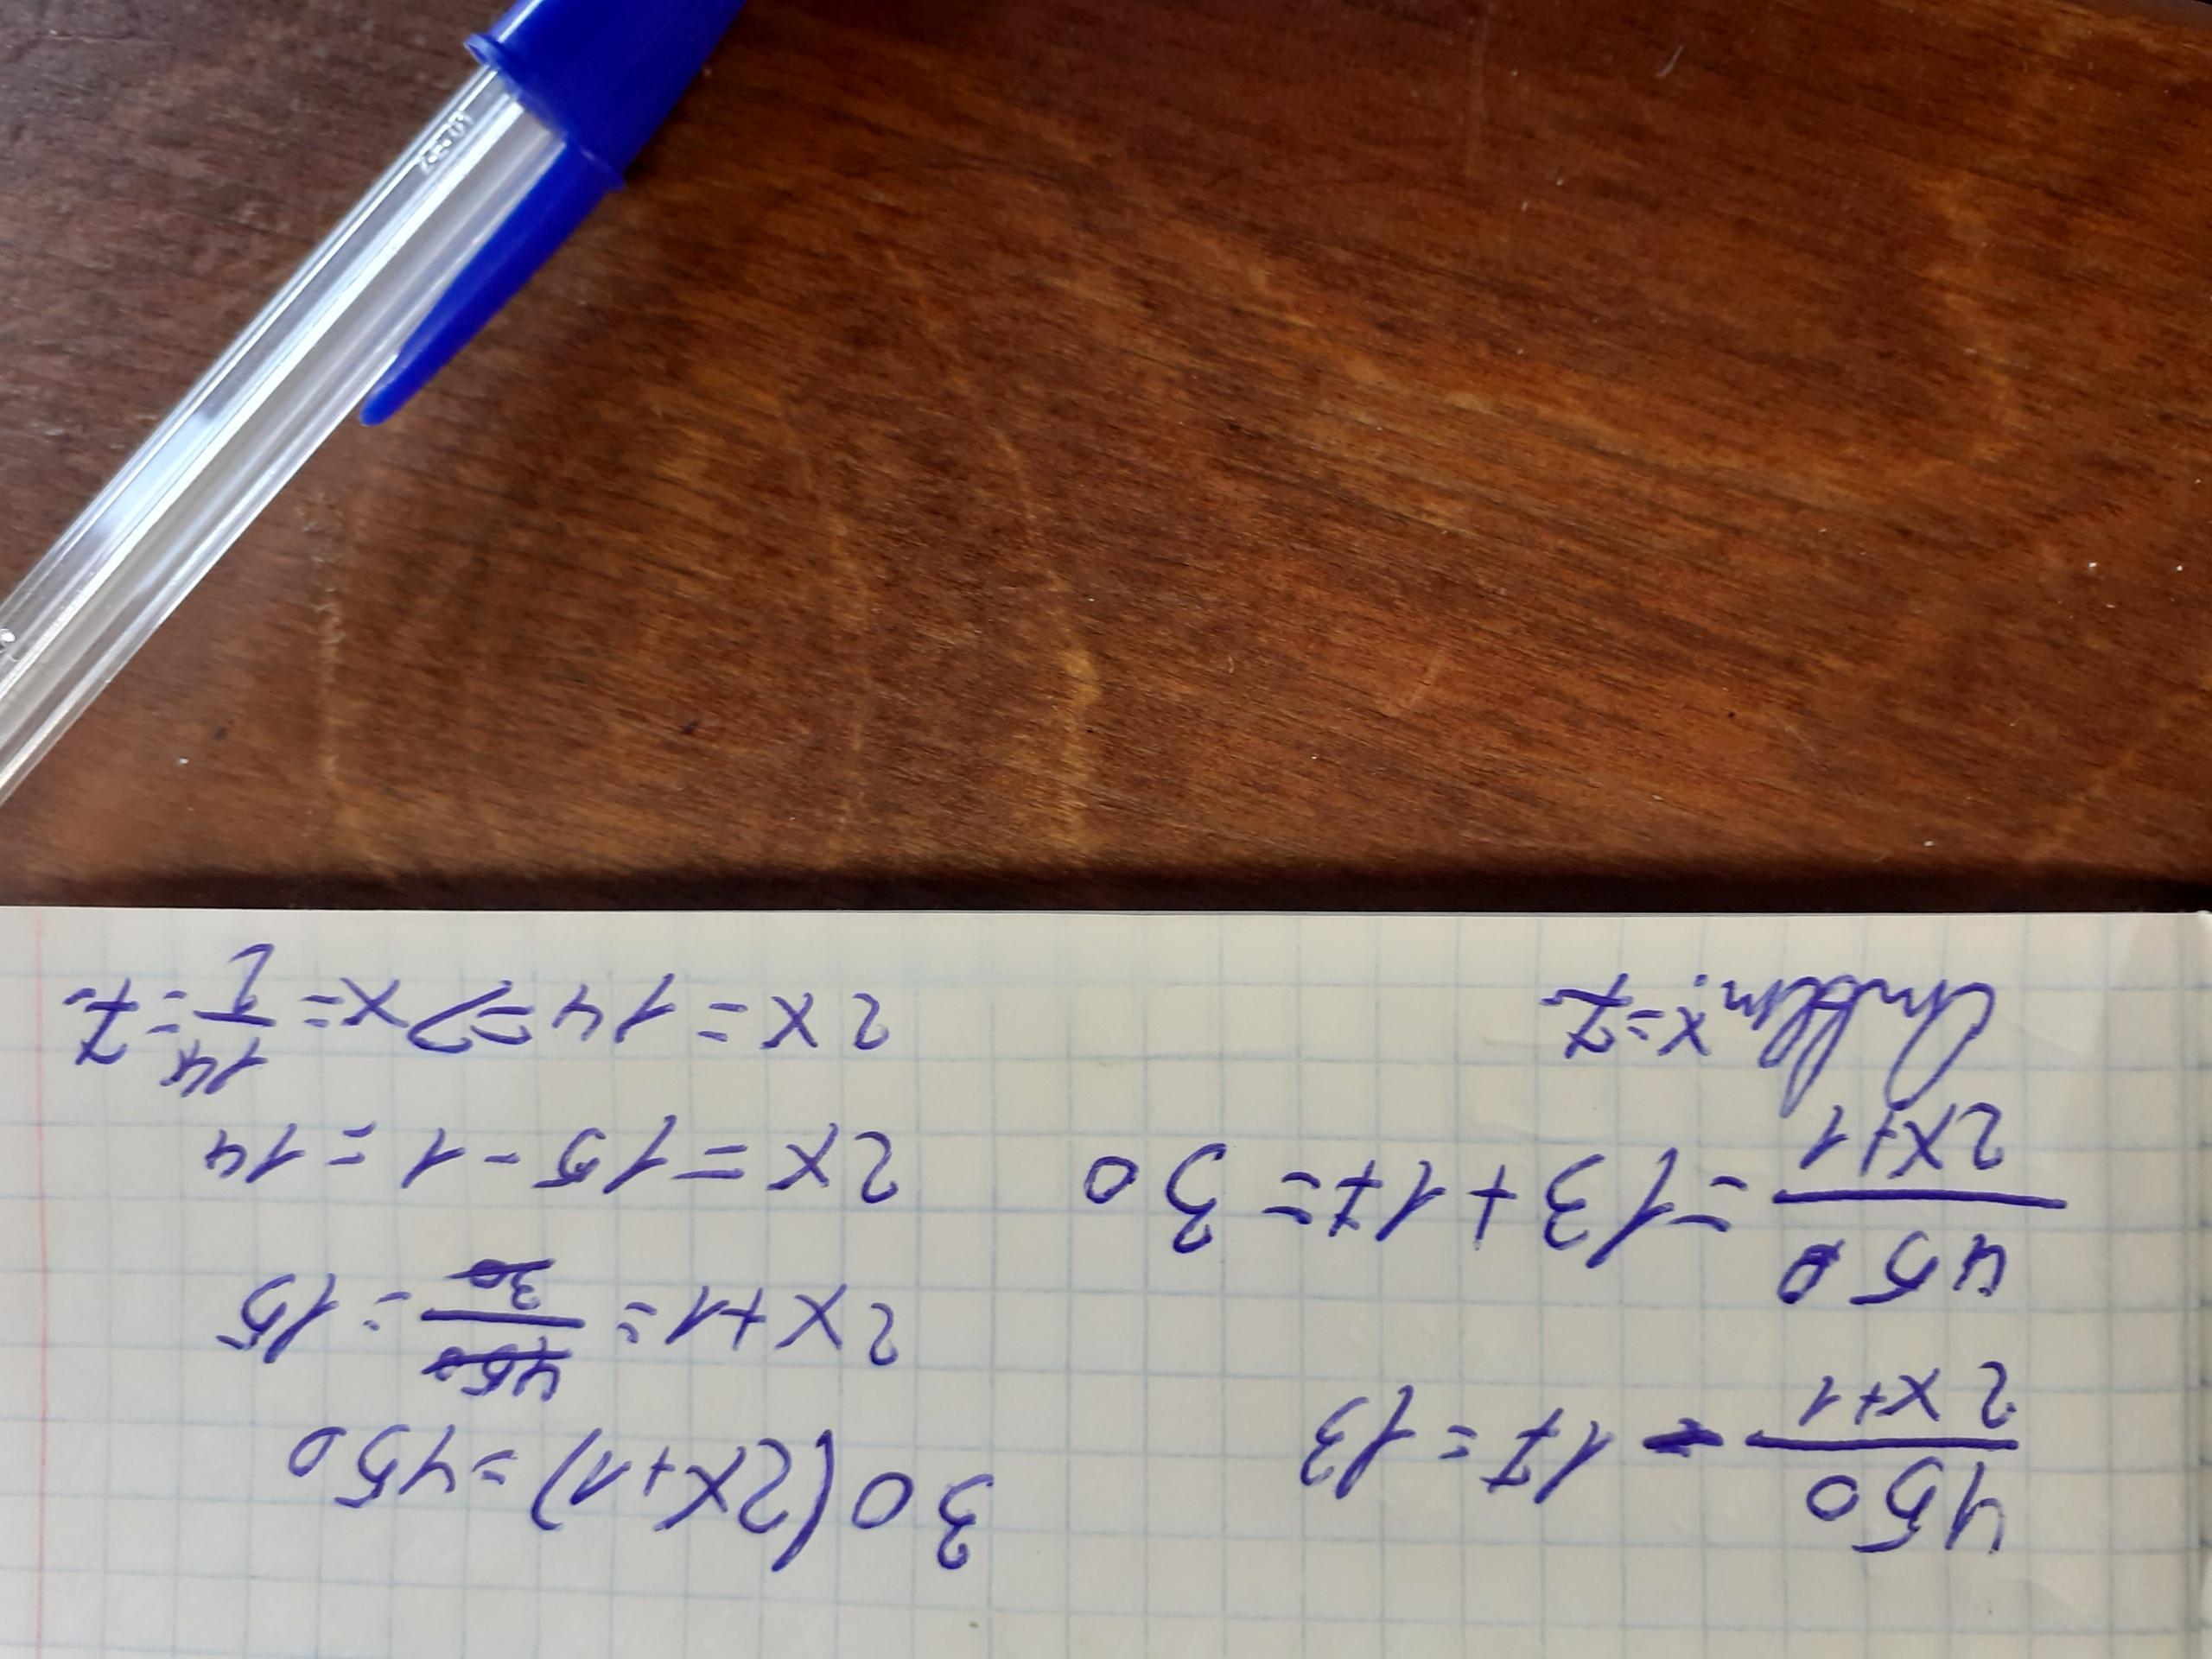 450/(2x+1) - 17 = 13
450/(2x+1) = 13 + 17 = 30
Ответ: x = 7
30(2x+1) = 450
2x+1 = 450/30 = 15
2x = 15 - 1 = 14
2x = 14 => x = 14/2 = 7